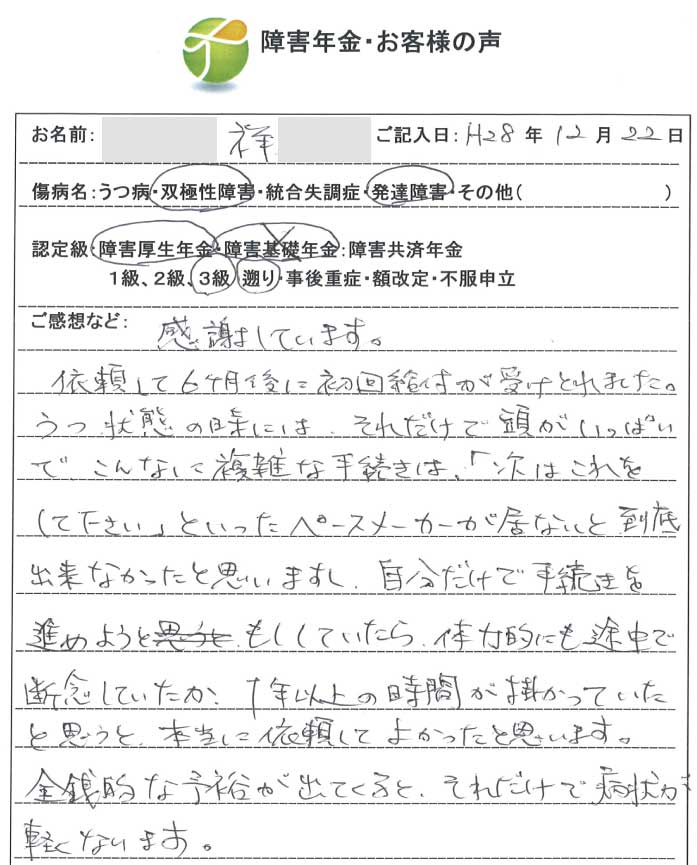 障害年金・お客様の声
お名前: 祥 ご記入日: H28 年 12 月 22 日
傷病名:うつ病・双極性障害・統合失調症・発達障害・その他( )
認定級:障害厚生年金・障害基礎年金:障害共済年金
1級、2級、3級 遡り・事後重症・額改定・不服申立
ご感想など: 感謝しています。
依頼して6ヶ月後に初回給付が受けとれました。
うつ状態の時には、それだけで頭がいっぱい
で、こんなに複雑な手続きは、「次はこれを
して下さい」といったペースメーカーが居ないと到底
出来なかったと思いますし、自分だけで手続きを
進めようと思うと もししていたら、体力的にも途中で
断念していたか、1年以上の時間が掛かっていた
と思うと、本当に依頼してよかったと思います。
金銭的な予裕が出てくると、それだけで病状が
軽くないます。